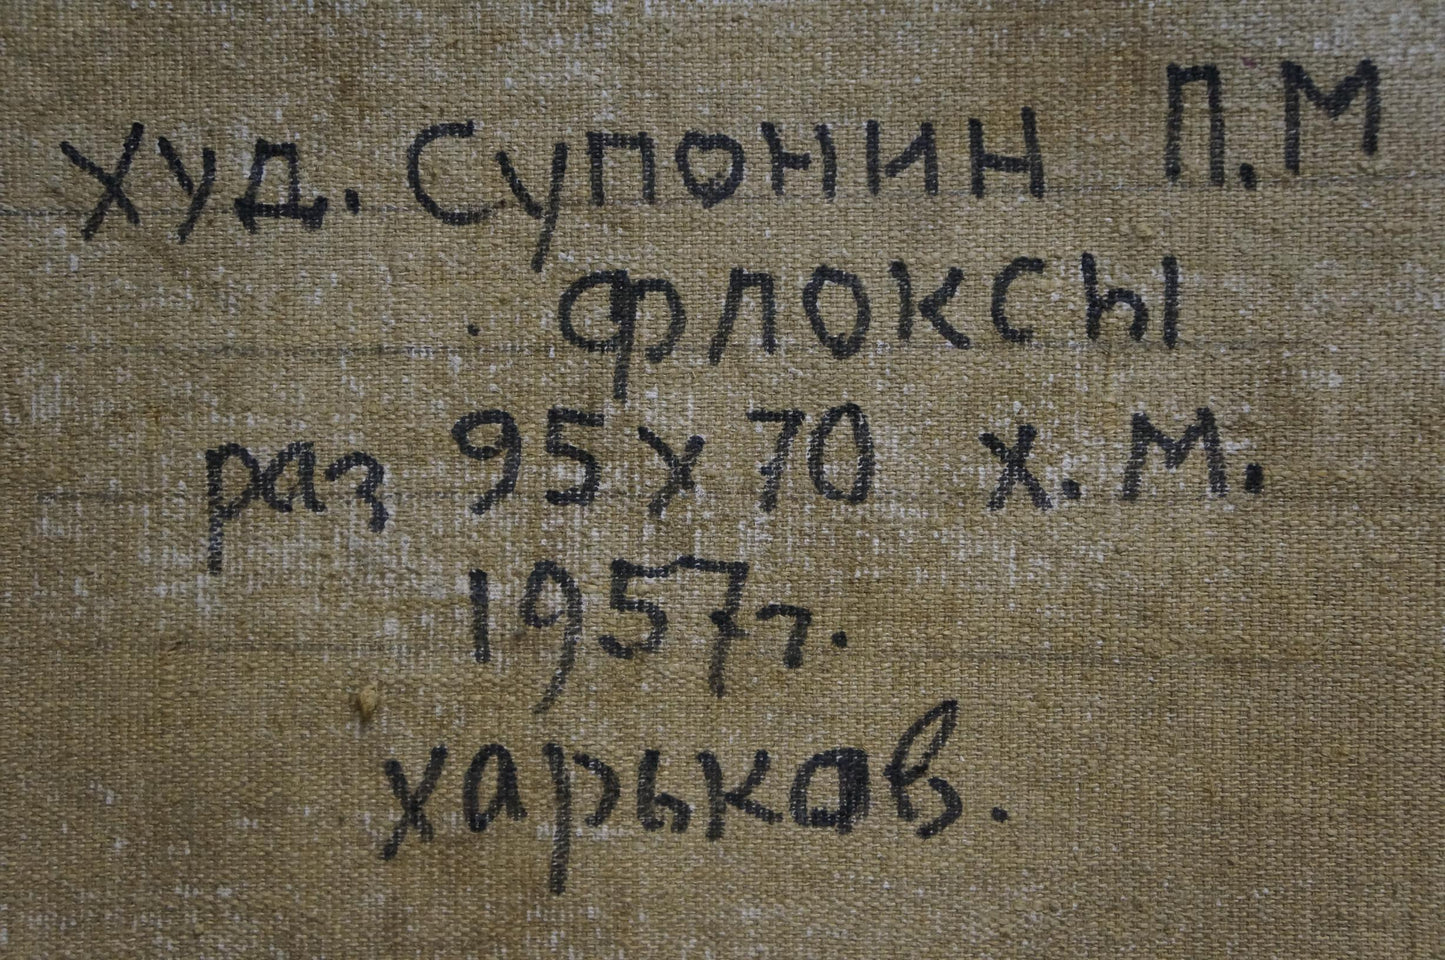 худ. Супонин П.М
флоксы
раз 95х70 х.м.
1957г.
харьков.